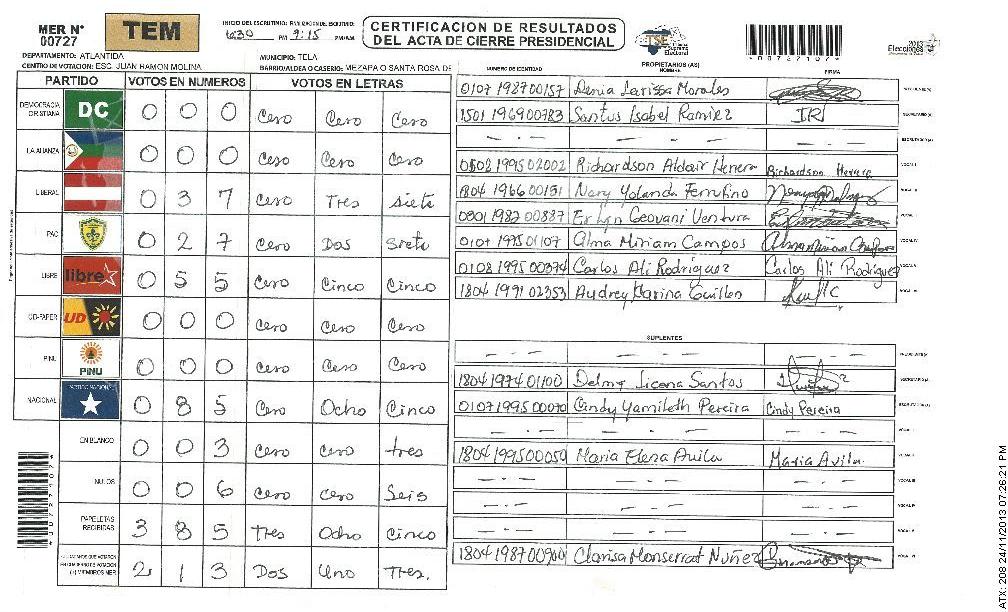 MER N° 00727
TEM
INICIO DEL ESCRUTINIO:
PM 9:15 PM/AM
CERTIFICACION DE RESULTADOS
DEL ACTA DE CIERRE PRESIDENCIAL
TSE Tribunal Supremo Electoral
Elecciones 2013
*00727107*
DEPARTAMENTO: ATLANTIDA
MUNICIPIO: TELA
CENTRO DE VOTACION: ESC. JUAN RAMON MOLINA
BARRIO/ALDEA O CASERIO: MEZAPA O SANTA ROSA DE
PARTIDO VOTOS EN NUMEROS VOTOS EN LETRAS
DEMOCRACIA CRISTIANA DC 0 0 0 Cero Cero Cero
LA ALIANZA 0 0 0 Cero Cero Cero
LIBERAL 0 3 7 Cero Tres siete
PAC 0 2 7 Cero Dos Siete
LIBRE libre 0 5 5 Cero Cinco Cinco
UD-FAPER UD 0 0 0 Cero Cero Cero
PINU PINU 0 0 0 Cero Cero Cero
NACIONAL PARTIDO NACIONAL 0 8 5 Cero Ocho Cinco
EN BLANCO 0 0 3 Cero Cero tres
NULOS 0 0 6 Cero Cero Seis
PAPELETAS RECIBIDAS 3 8 5 Tres Ocho Cinco
CIUDADANOS QUE VOTARON EN CUADERNO DE VOTACION (+) MIEMBROS MER 2 1 3 Dos Uno Tres.
NUMERO DE IDENTIDAD PROPIETARIOS (AS) NOMBRE FIRMA
0107 198700157 Denia Larissa Morales
1501 196900783 Santos Isabel Ramirez IR
- . -
0502 199502002 Richardson Aldair Herrera Richardson Herrera
1804 196600151 Nery Yolanda Ferrufino
0301 198200887 Erlyn Geovani Ventura
0107 199501107 Alma Miriam Campos Alma Miriam Campos
0108 199500374 Carlos Ali Rodriguez Carlos Ali Rodriguez
1804 199102353 Audrey Carina Guillen
SUPLENTES
1804 197401100 Delmy Licona Santos
0107 199500070 Cindy Yamileth Pereira Cindy Pereira
1804 199500050 Maria Elena Avila Maria Avila
1804 198700900 Clarisa Monserrat Nuñez
ATX: 208 24/11/2013 07:26:21 PM